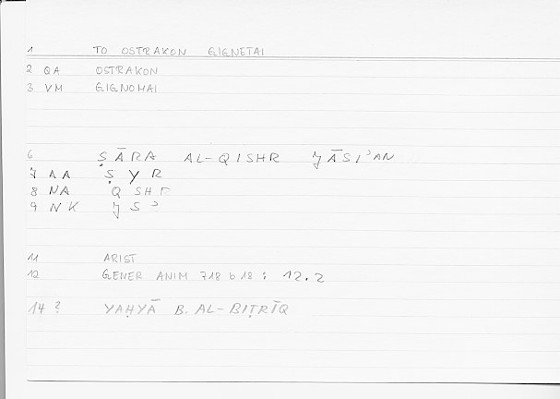 1 TO OSTRAKON GIGNETAI
2 QA OSTRAKON
3 VM GIGNOMAI
6 ṢĀRA AL-QISHR JĀSIʾAN
7 AA ṢYR
8 NA QSHR
9 NK JSʾ
11 ARIST
12 GENER ANIM 718 b 18 : 12.2
14 ? YAḤYĀ B. AL-BIṬRĪQ